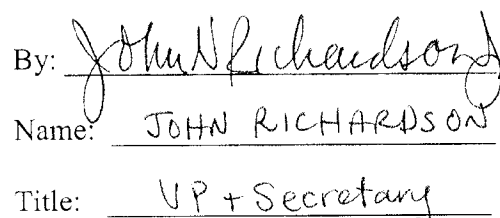 By: John N Richardson
Name: JOHN RICHARDSON
Title: VP + Secretary